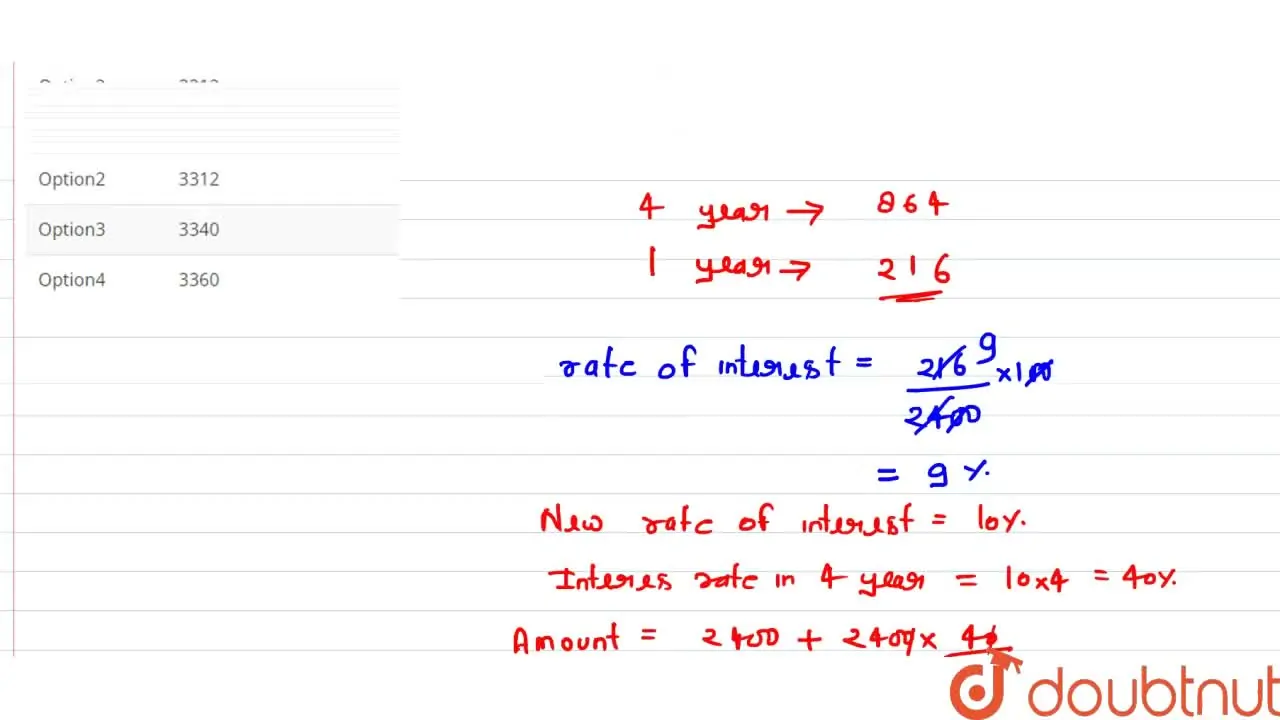 Option2 3312
Option3 3340
Option4 3360
4 year → 864
1 year → 216
rate of interest = 216/2400 9 ×100
= 9 %
New rate of interest = 10%.
Interes rate in 4 year = 10×4 = 40%.
Amount = 2400 + 2400× 40
doubtnut